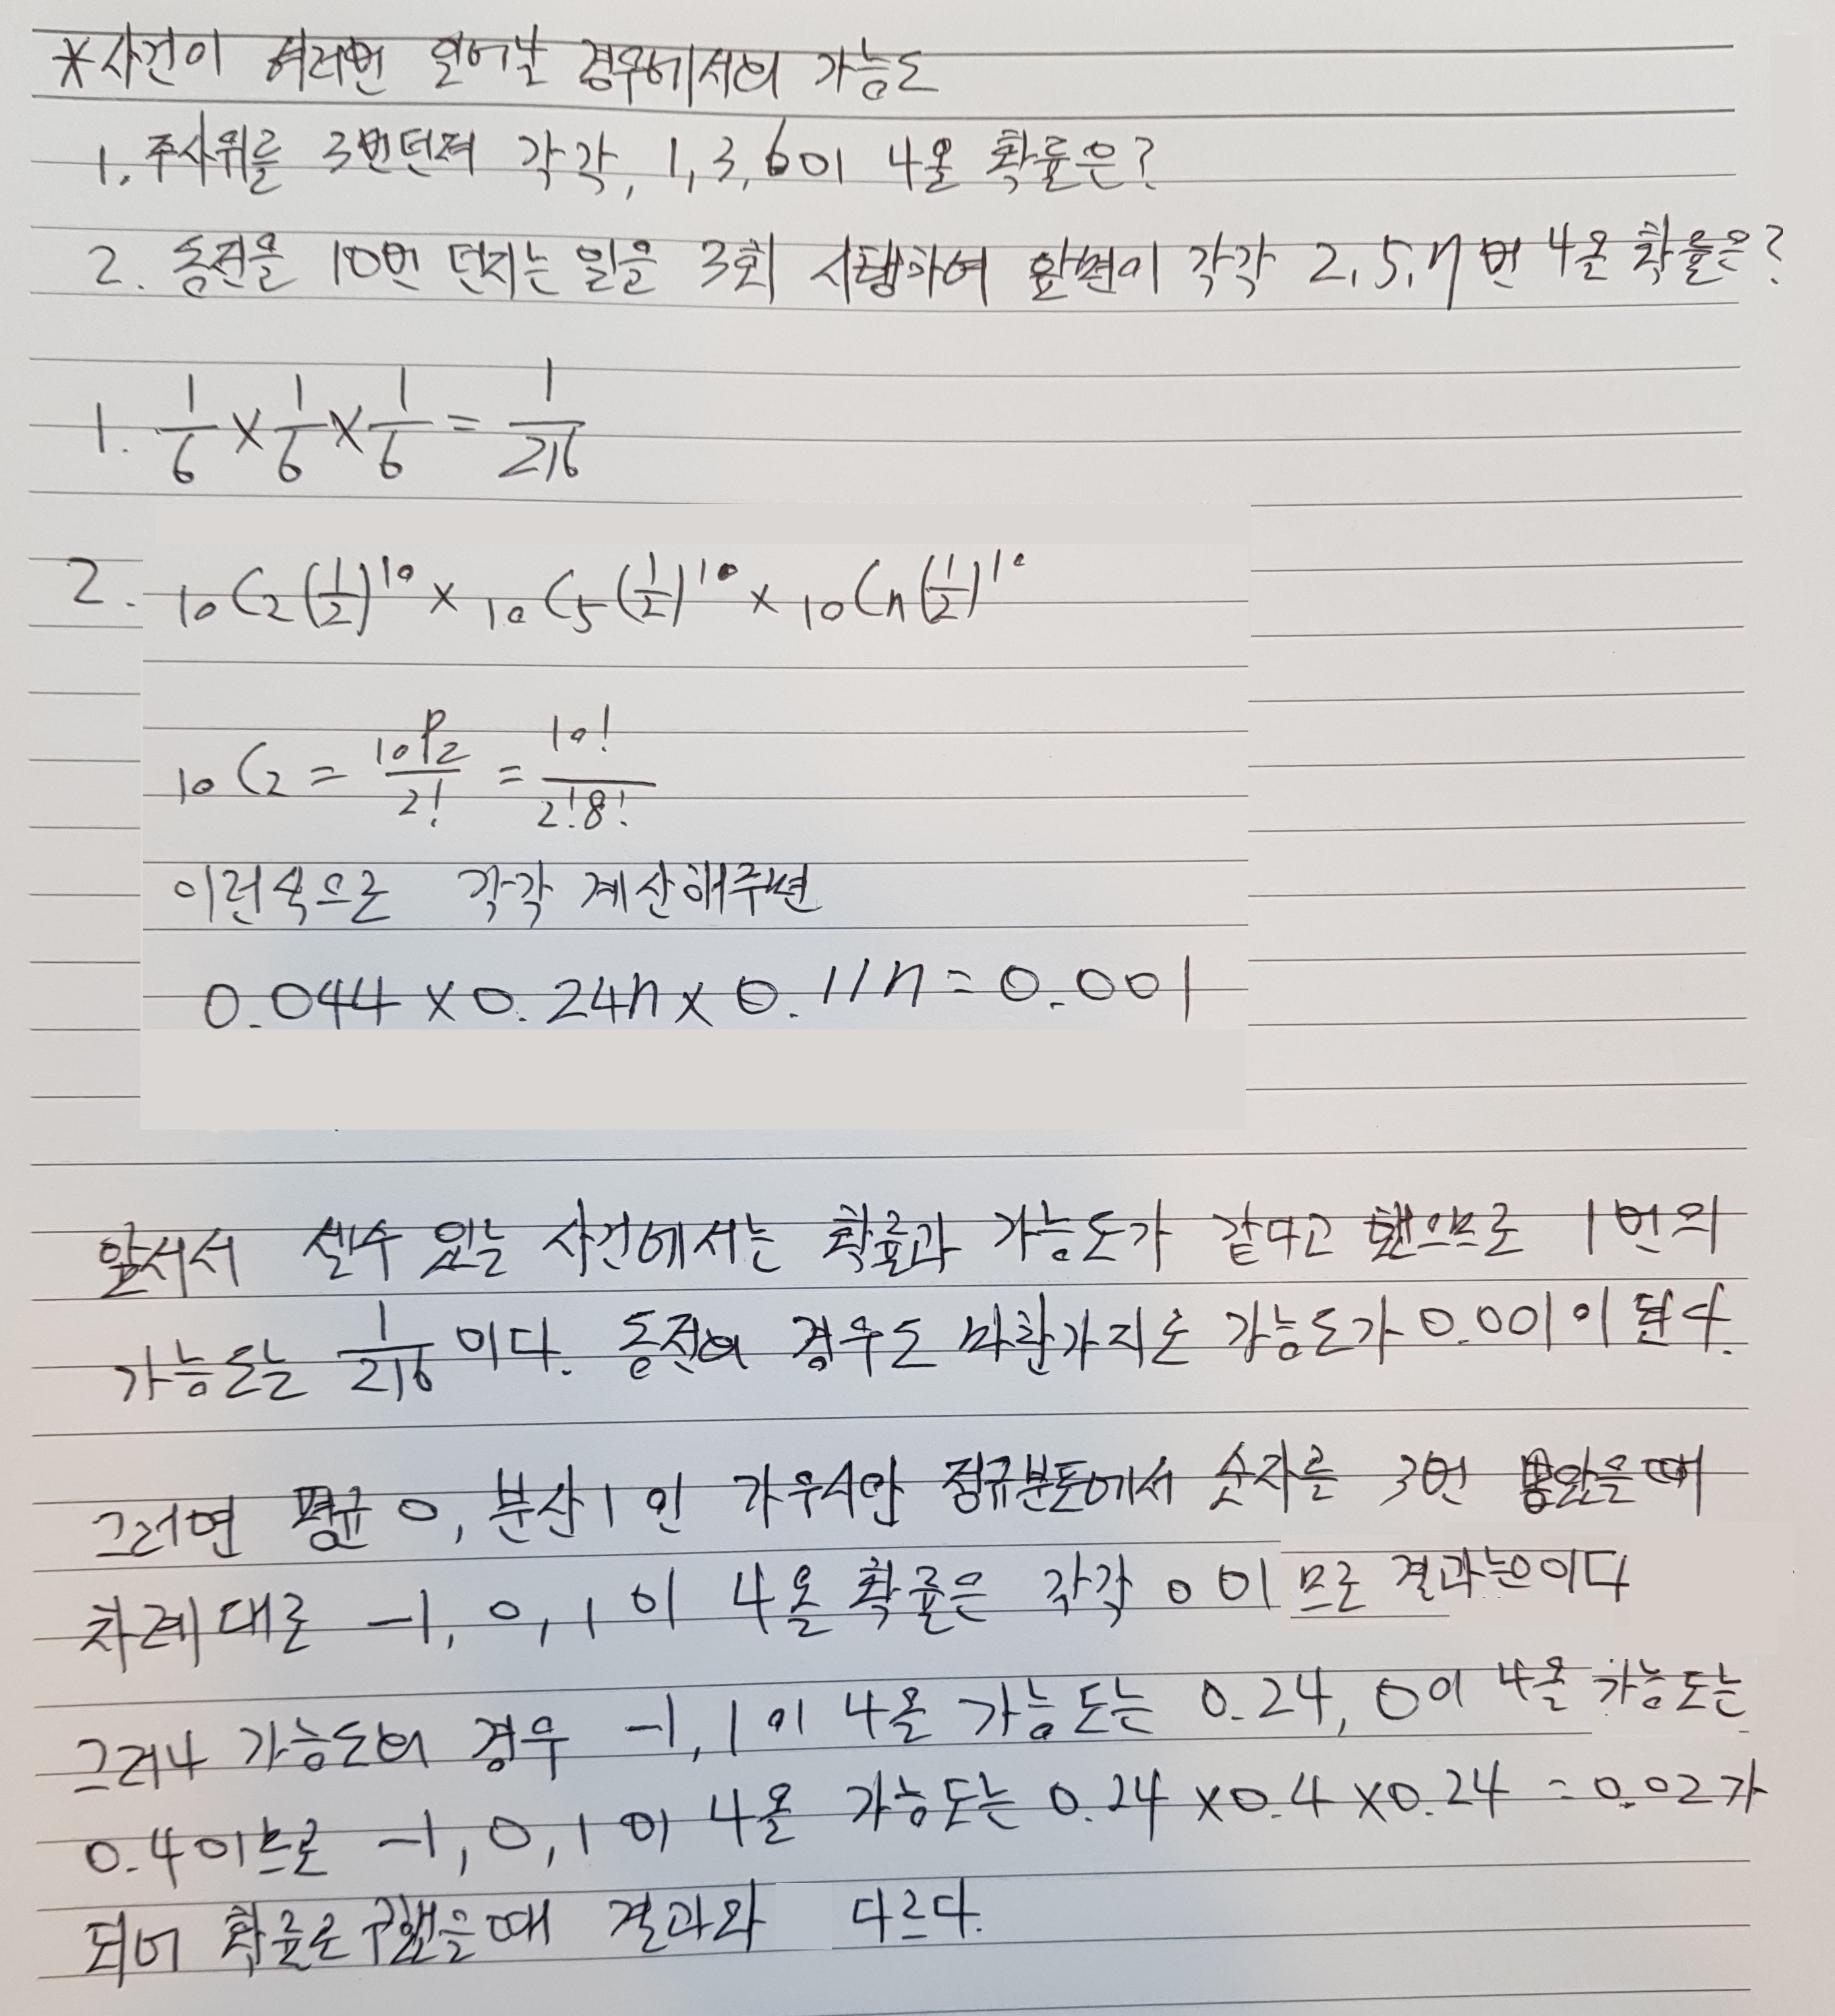 *사건이 여러번 일어날 경우에서의 가능도
1. 주사위를 3번던져 각각, 1, 3, 6이 나올 확률은?
2. 동전을 10번 던지는 일을 3회 시행하여 앞면이 각각 2, 5, 7번 나올 확률은?
1. 1/6 × 1/6 × 1/6 = 1/216
2. ₁₀C₂(1/2)¹⁰ × ₁₀C₅(1/2)¹⁰ × ₁₀C₇(1/2)¹⁰
₁₀C₂ = ₁₀P₂/2! = 10!/2!8!
이런식으로 각각 계산해주면
0.044 × 0.247 × 0.117 = 0.001
앞서서 셀수 있는 사건에서는 확률과 가능도가 같다고 했으므로 1번의
가능도는 1/216 이다. 동전의 경우도 마찬가지로 가능도가 0.001이 된다.
그러면 평균 0, 분산 1인 가우시안 정규분포에서 숫자를 3번 뽑았을때
차례대로 -1, 0, 1이 나올 확률은 각각 0이므로 결과는0이다
그러나 가능도의 경우 -1, 1이 나올 가능도는 0.24, 0이 나올 가능도는
0.4이므로 -1, 0, 1이 나올 가능도는 0.24 × 0.4 × 0.24 = 0.02가
되어 확률로 구했을때 결과와 다르다.